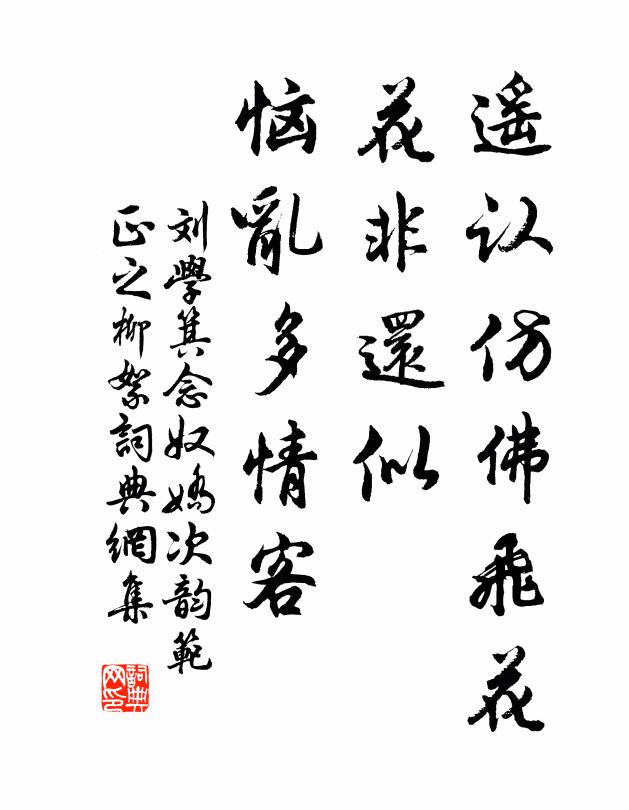 遥认仿佛飛花
花非還似
恼亂多情客
刘學箕念奴嬌次韵範
正之柳絮詞典網集
詞典網印